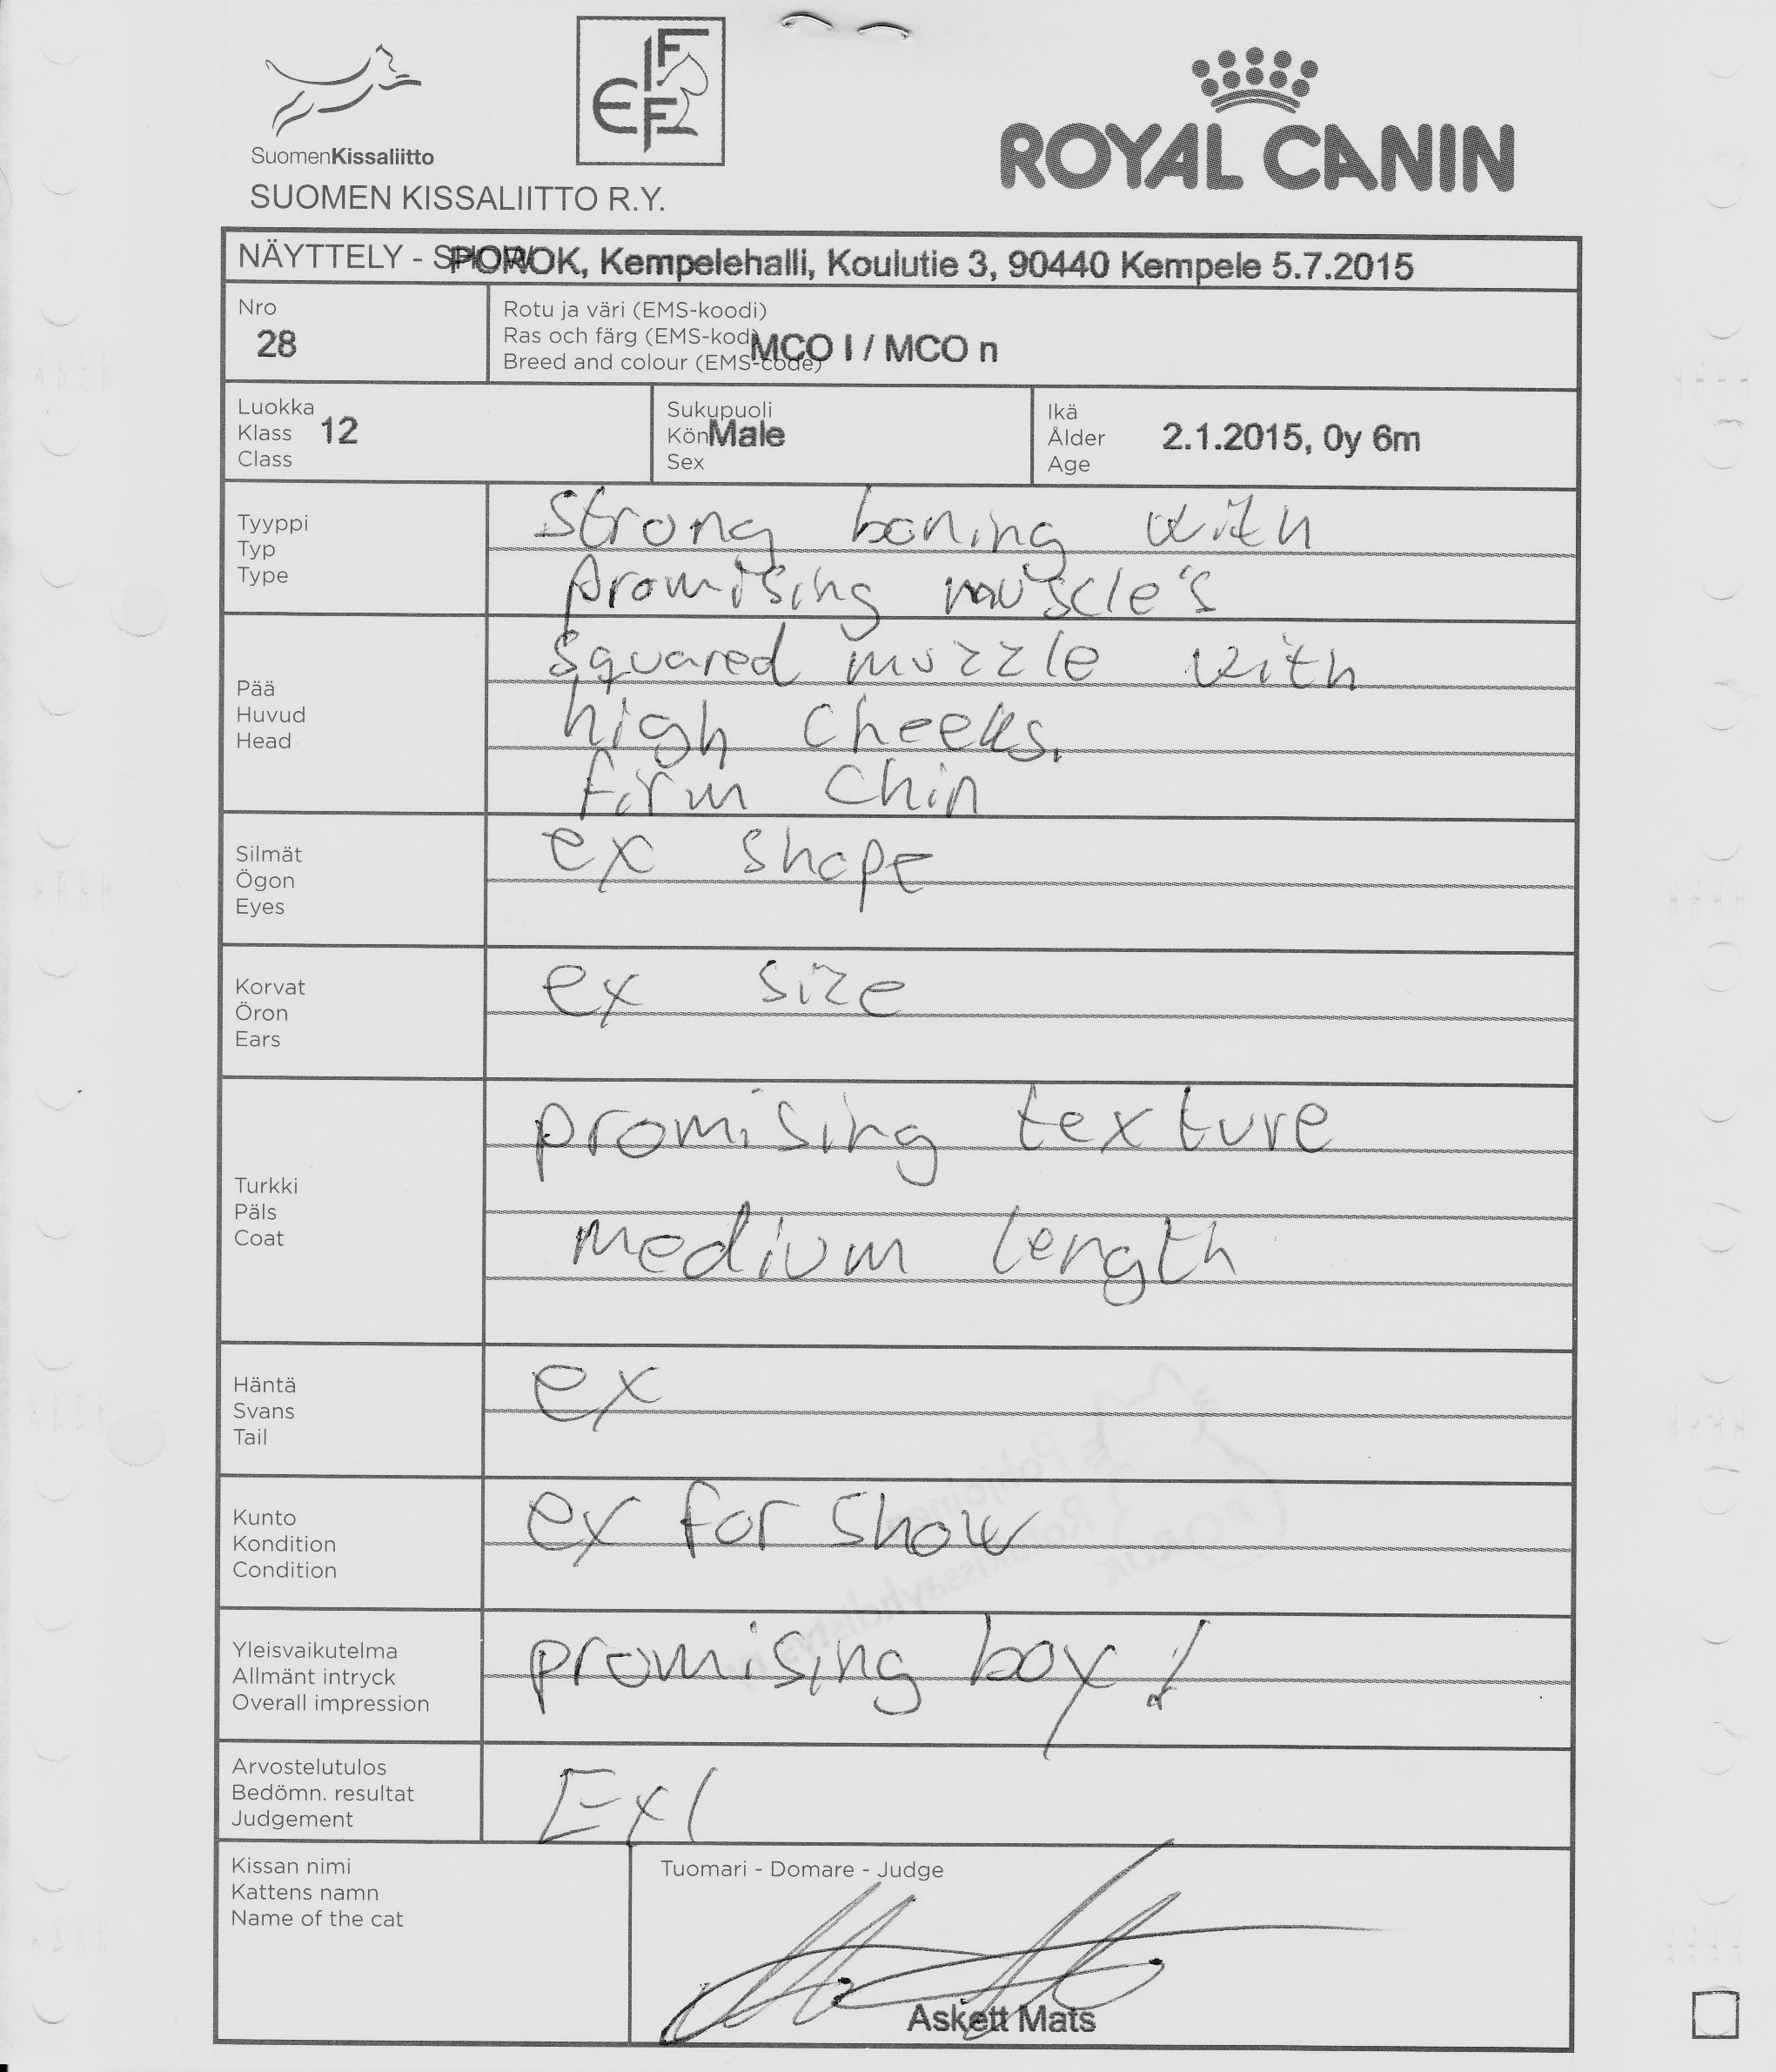 SuomenKissaliitto
SUOMEN KISSALIITTO R.Y.
FIFE
ROYAL CANIN
NÄYTTELY - SHOW
POROK, Kempelehalli, Koulutie 3, 90440 Kempele 5.7.2015
Nro
28
Rotu ja väri (EMS-koodi)
Ras och färg (EMS-kod)
Breed and colour (EMS-code)
MCO I / MCO n
Luokka
Klass
Class
12
Sukupuoli
Kön
Sex
Male
Ikä
Ålder
Age
2.1.2015, 0y 6m
Tyyppi
Typ
Type
Strong boning with
promising muscle's
Pää
Huvud
Head
Squared muzzle with
high cheeks.
firm chin
Silmät
Ögon
Eyes
ex shape
Korvat
Öron
Ears
ex size
Turkki
Päls
Coat
promising texture
medium length
Häntä
Svans
Tail
ex
Kunto
Kondition
Condition
ex for show
Yleisvaikutelma
Allmänt intryck
Overall impression
promising boy!
Arvostelutulos
Bedömn. resultat
Judgement
Ex1
Kissan nimi
Kattens namn
Name of the cat
Tuomari - Domare - Judge
Askett Mats